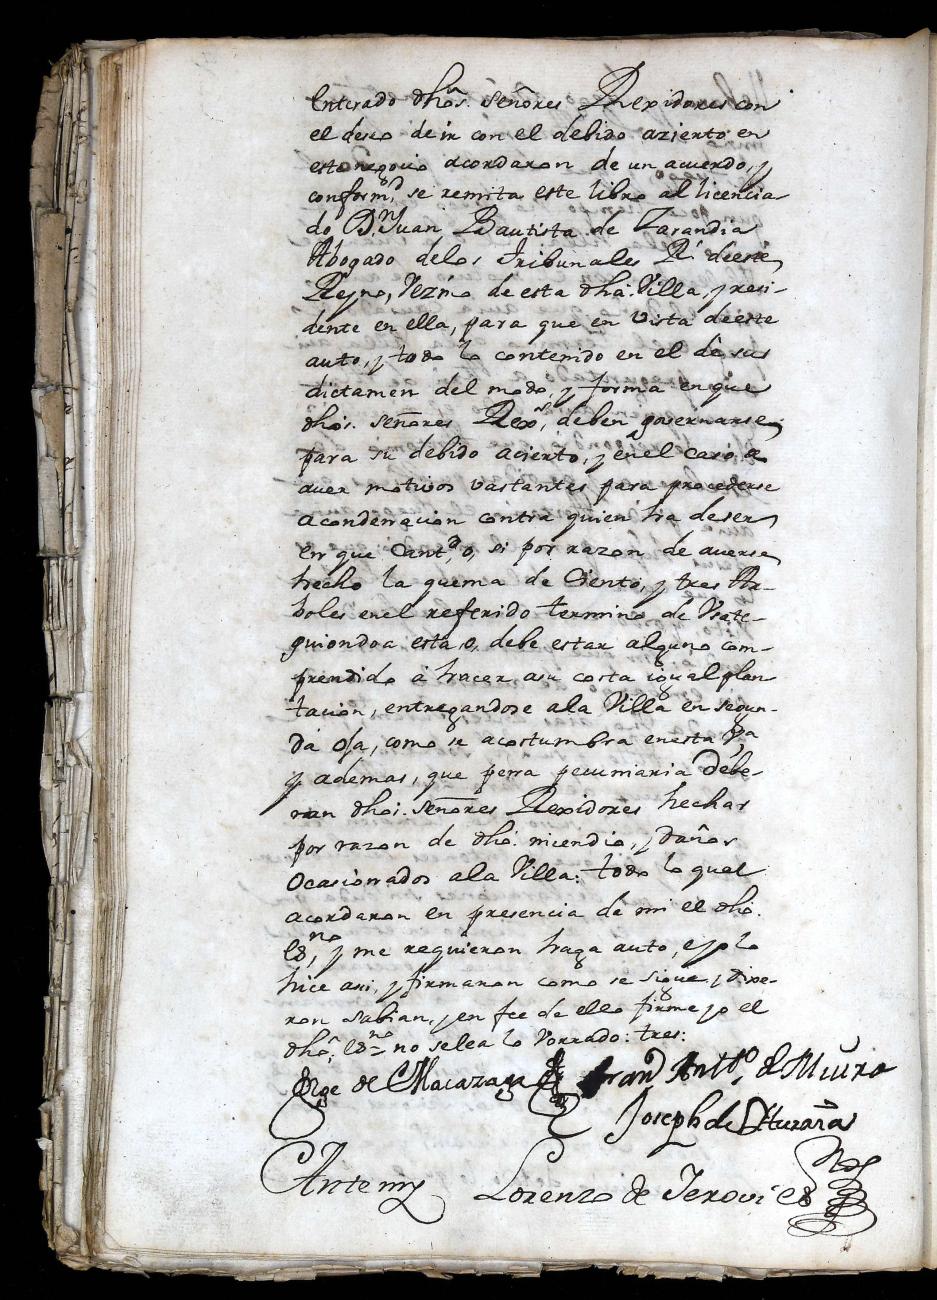 Enterado dhos. señores Rexidores con
el deseo de ir con el debido azierto en
este negocio acordaron de un acuerdo, y
conformd. se remita este libro al licencia-
do Dn. Juan Bautista de Zarandia
Abogado delos Tribunales Rs. de este
Reyno, Vezno de esta dha. Villa, y resi-
dente en ella, para que en vista de este
auto, y todo lo contenido en el dè sus
dictamen del modo, y forma en que
dhos. señores Rexs, deben governarse
para su debido acierto, y en el caso a
auer motivos vastantes para procederse
a condenacion contra quien ha de ser,
en que Cantd, o, si por razon de averse
hecho la quema de Ciento, y tres Ar-
boles en el referido termino de Vsate-
guiondoa esta, o, debe estar alguno com-
prendido à hacer asu costa igual plan
tacion, entregandose ala Villa en segun-
da oja, como se acostumbra en esta
y ademas, que pena pecuniaria debe-
ran dhos. señores Rexidores hechar
por razon de dho. incendio, y daños
Ocasionados ala Villa: todo lo qual
acordaron en presencia de mi el dho.
esno, y me requieron haga auto, e yo lo
hice asi, y firmaron como se sigue, y dixe-
ron sabian, y en fee de ello firme yo el
dho, esno = no se lea lo Vorrado: tres:
Jorge de Macazaga Frand Antto. de Muura
Joseph de
Ante my Lorenzo de Jerovi es